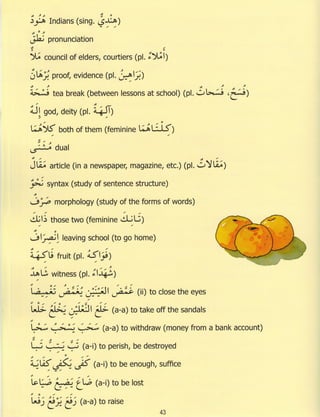 هُنود Indians (sing. هِنْديّ)
نُطْق pronunciation
مَلأ council of elders, courtiers (pl. أمْلاء)
بُرْهان proof, evidence (pl. بَراهين)
فُسْحة tea break (between lessons at school) (pl. فُسَح، فُسْحات)
إلٰه god, deity (pl. آلِهة)
كِلاهُما both of them (feminine كِلْتاهُما)
مُثَنّى dual
مَقال article (in a newspaper, magazine, etc.) (pl. مَقالات)
نَحْو syntax (study of sentence structure)
صَرْف morphology (study of the forms of words)
ذانِكَ those two (feminine تانِكَ)
اِنْصِراف leaving school (to go home)
فاكِهة fruit (pl. فَواكِه)
شاهِد witness (pl. شُهَداء)
(ii) to close the eyes
خَلَعَ يَخْلَعُ (a-a) to take off the sandals
سَحَبَ يَسْحَبُ سَحْبًا (a-a) to withdraw (money from a bank account)
(a-i) to perish, be destroyed
كَفى يَكْفي كِفاية (a-i) to be enough, suffice
ضاعَ يَضيعُ ضَياعًا (a-i) to be lost
رَفَعَ يَرْفَعُ رَفْعًا (a-a) to raise
43